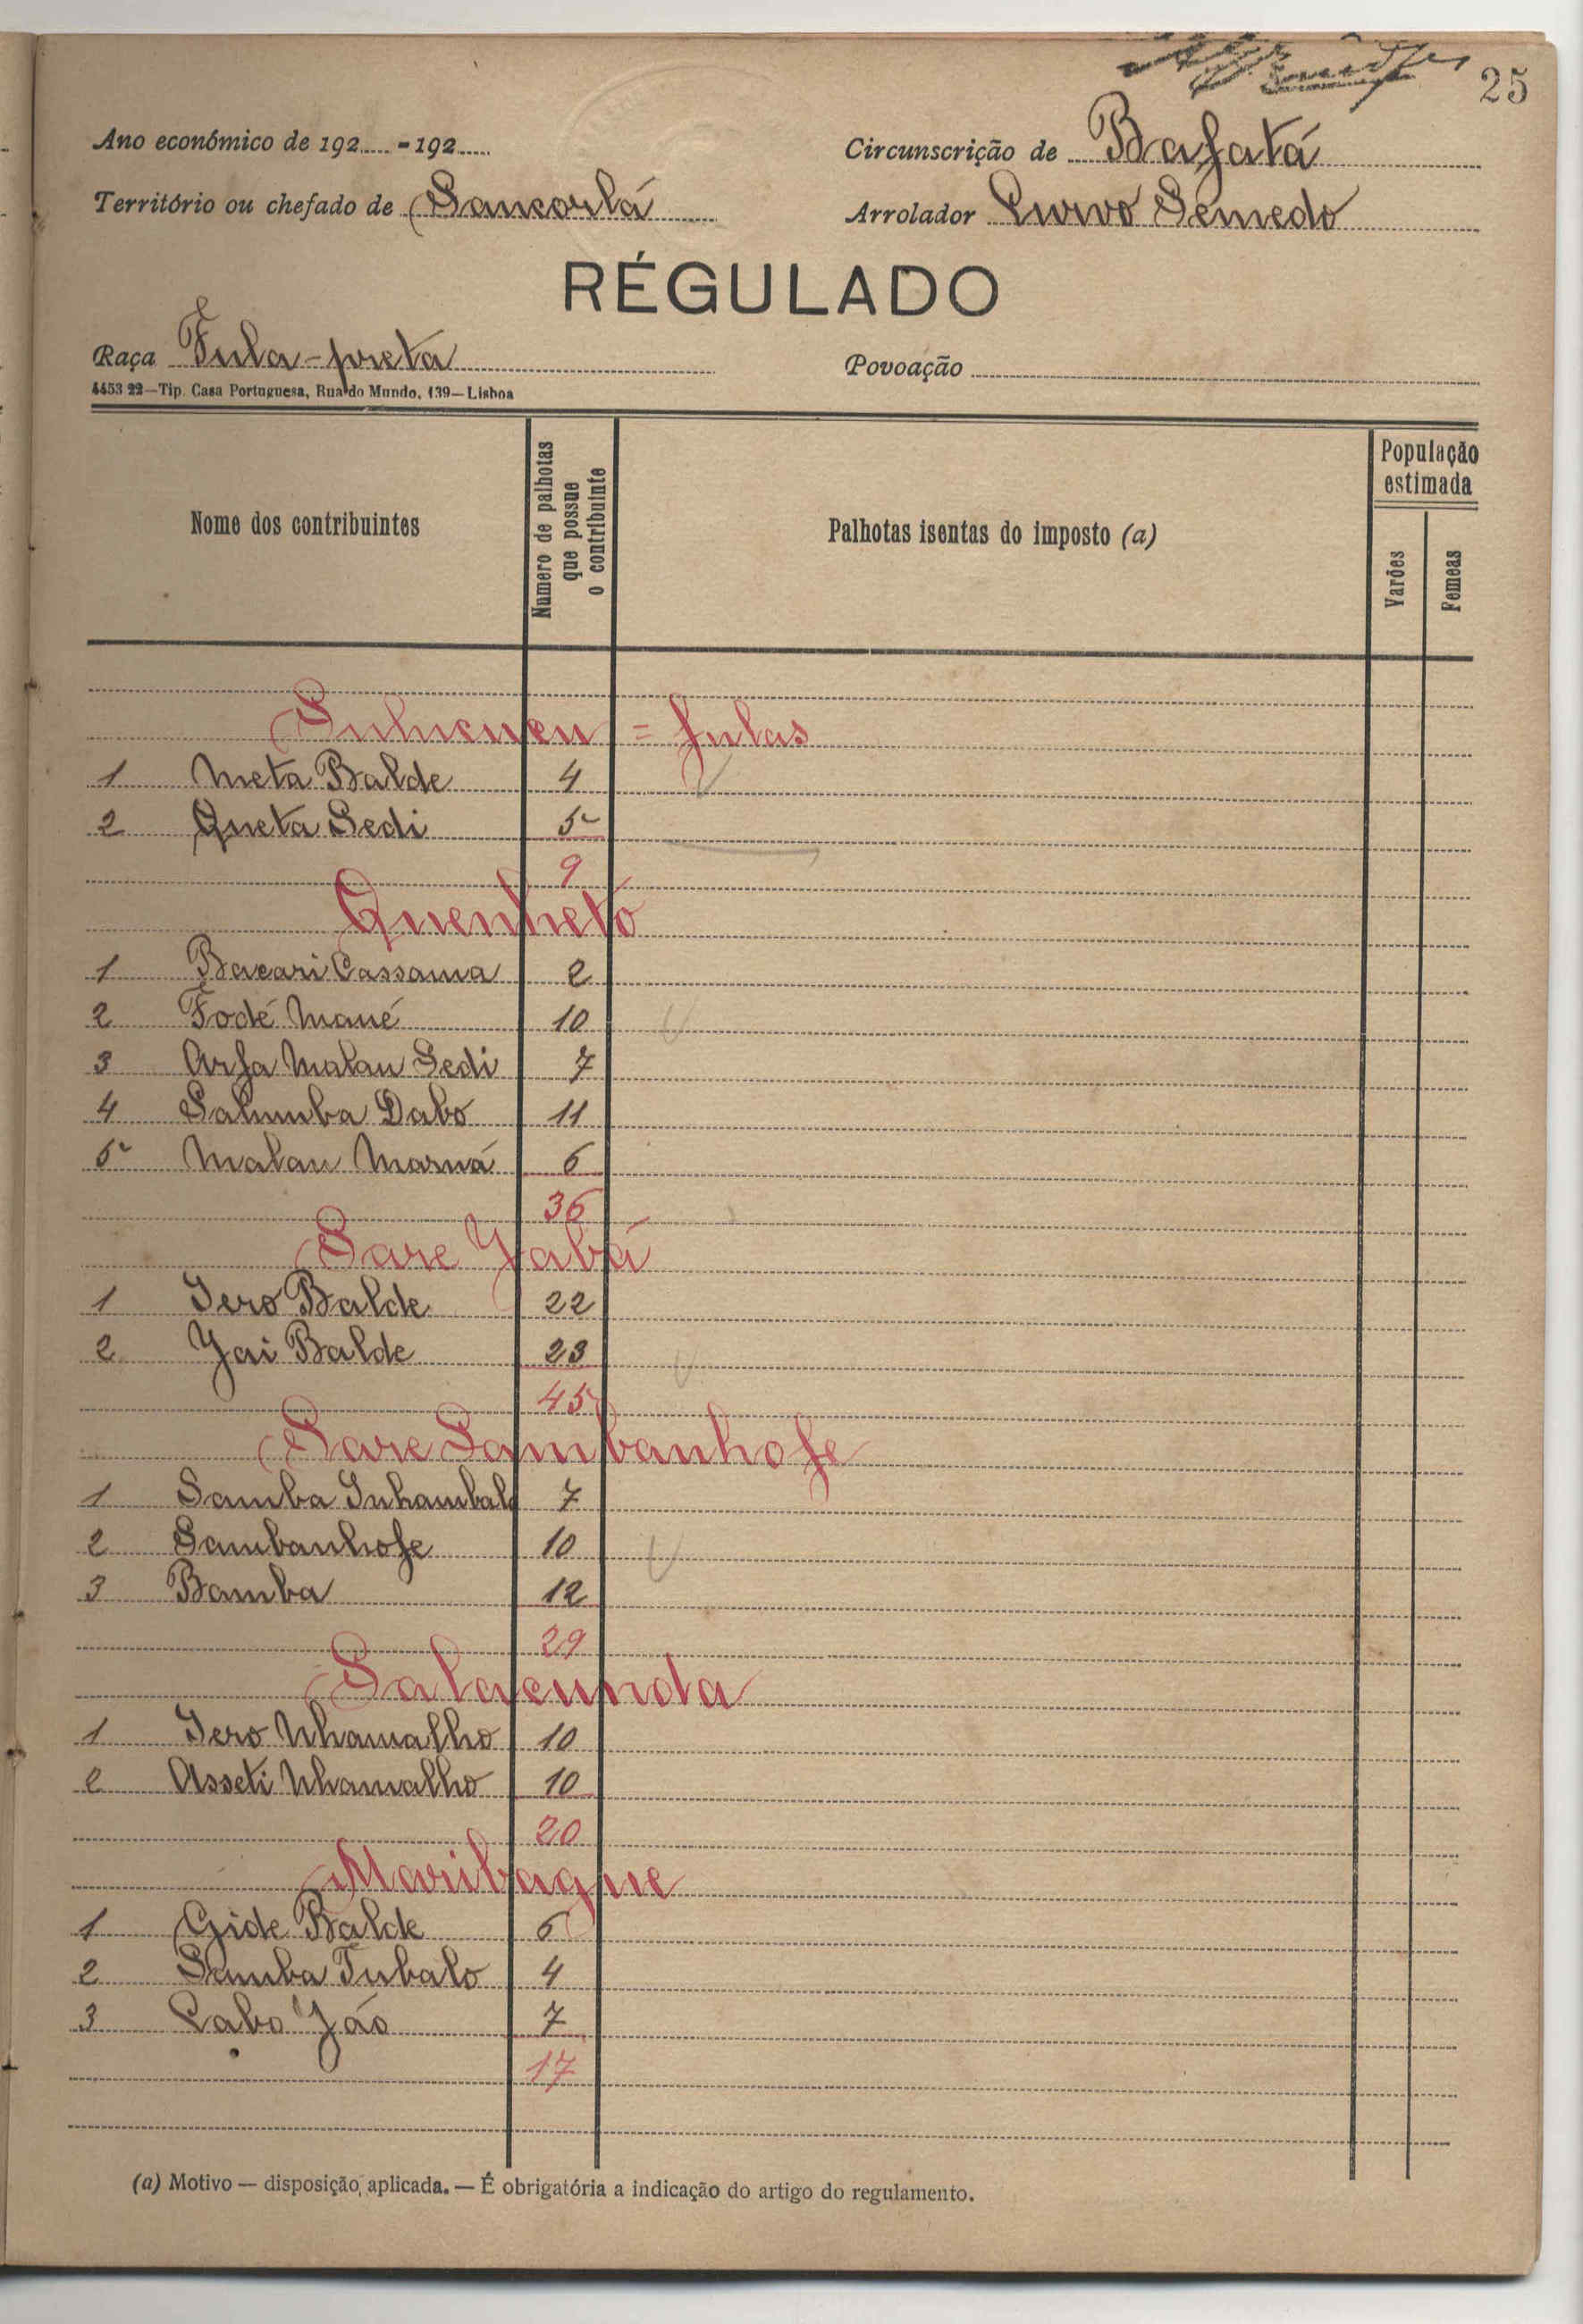 25
Ano económico de 192.....-192..... Circunscrição de Bafatá
Território ou chefado de Sancorlá Arrolador Curvo Semedo
RÉGULADO
Raça Fula-preta Povoação
4453 22—Tip. Casa Portuguesa, Rua do Mundo, 139—Lisboa
Nome dos contribuintes Numero de palhotas que possue o contribuinte Palhotas isentas do imposto (a) População estimada Varões Femeas
= fulas
1 Meta Balde 4
2 Queta Sedi 5
9
Quenhetó
1 Bacari Cassama 2
2 Fodé Mané 10
3 Arfa Malan Sedi 7
4 Salumba Dabo 11
5 Malan Marná 6
36
Sare Yabá
1 Iero Balde 22
2 Yai Balde 23
45
Sare Sambanhofe
1 Samba Inhambalo 7
2 Sambanhofe 10
3 Bamba 12
29
Salacunda
1 Iero Nhamalho 10
2 Asseti Nhamalho 10
20
Maribaque
1 Gide Balde 6
2 Samba Tubalo 4
3 Cabo Jáo 7
17
(a) Motivo — disposição aplicada. — É obrigatória a indicação do artigo do regulamento.